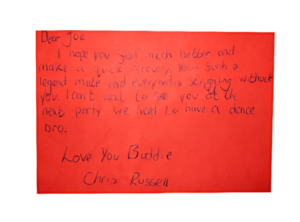 Dear Joe
I hope you feel much better and
make a quick recovery. Your such a
legend mate and everyone's struggling without
you. I can't wait to see you at the
next party we need to have a dance
bro.
Love You Buddie
Chris Russell